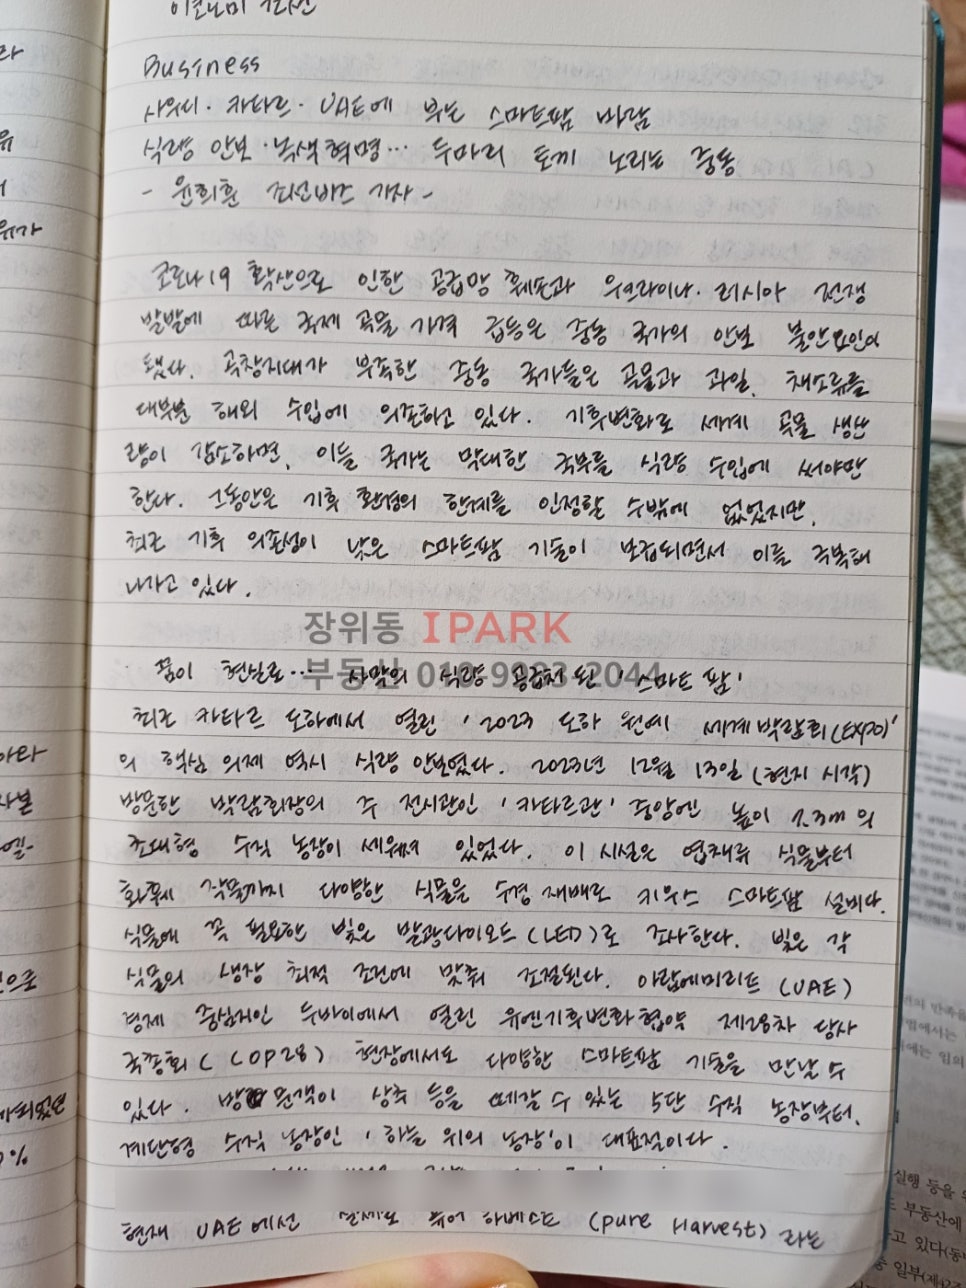 이코노미 조선
Business
사우디·카타르·UAE에 부는 스마트팜 바람
식량 안보·녹색혁명… 두마리 토끼 노리는 중동
- 윤희훈 조선비즈 기자 -
코로나19 확산으로 인한 공급망 훼손과 우크라이나·러시아 전쟁
발발에 따른 국제 곡물 가격 급등은 중동 국가의 안보 불안요인이
됐다. 곡창지대가 부족한 중동 국가들은 곡물과 과일, 채소류를
대부분 해외 수입에 의존하고 있다. 기후변화로 세계 곡물 생산
량이 감소하면, 이들 국가는 막대한 국부를 식량 수입에 써야만
한다. 그동안은 기후 환경의 한계를 인정할 수밖에 없었지만,
최근 기후 의존성이 낮은 스마트팜 기술이 보급되면서 이를 극복해
나가고 있다.
장위동 IPARK
부동산 010-9993-2044
꿈이 현실로… 사막의 식량 공급처 된 '스마트팜'
최근 카타르 도하에서 열린 '2023 도하 원예 세계박람회(EXPO)'
의 핵심 의제 역시 식량 안보였다. 2023년 12월 13일(현지 시각)
방문한 박람회장의 주 전시관인 '카타르관' 중앙엔 높이 7.3m의
초대형 수직 농장이 세워져 있었다. 이 시설은 엽채류 식물부터
화훼 작물까지 다양한 식물을 수경 재배로 키우는 스마트팜 설비다.
식물에 꼭 필요한 빛은 발광다이오드(LED)로 조사한다. 빛은 각
식물의 생장 최적 조건에 맞춰 조절된다. 아랍에미리트(UAE)
경제 중심지인 두바이에서 열린 유엔기후변화협약 제28차 당사
국총회(COP28) 현장에서도 다양한 스마트팜 기술을 만날 수
있다. 방문객이 상추 등을 떼갈 수 있는 5단 수직 농장부터,
계단형 수직 농장인 '하늘 위의 농장'이 대표적이다.
현재 UAE에선 실제로 퓨어 하베스트 (pure Harvest) 라는